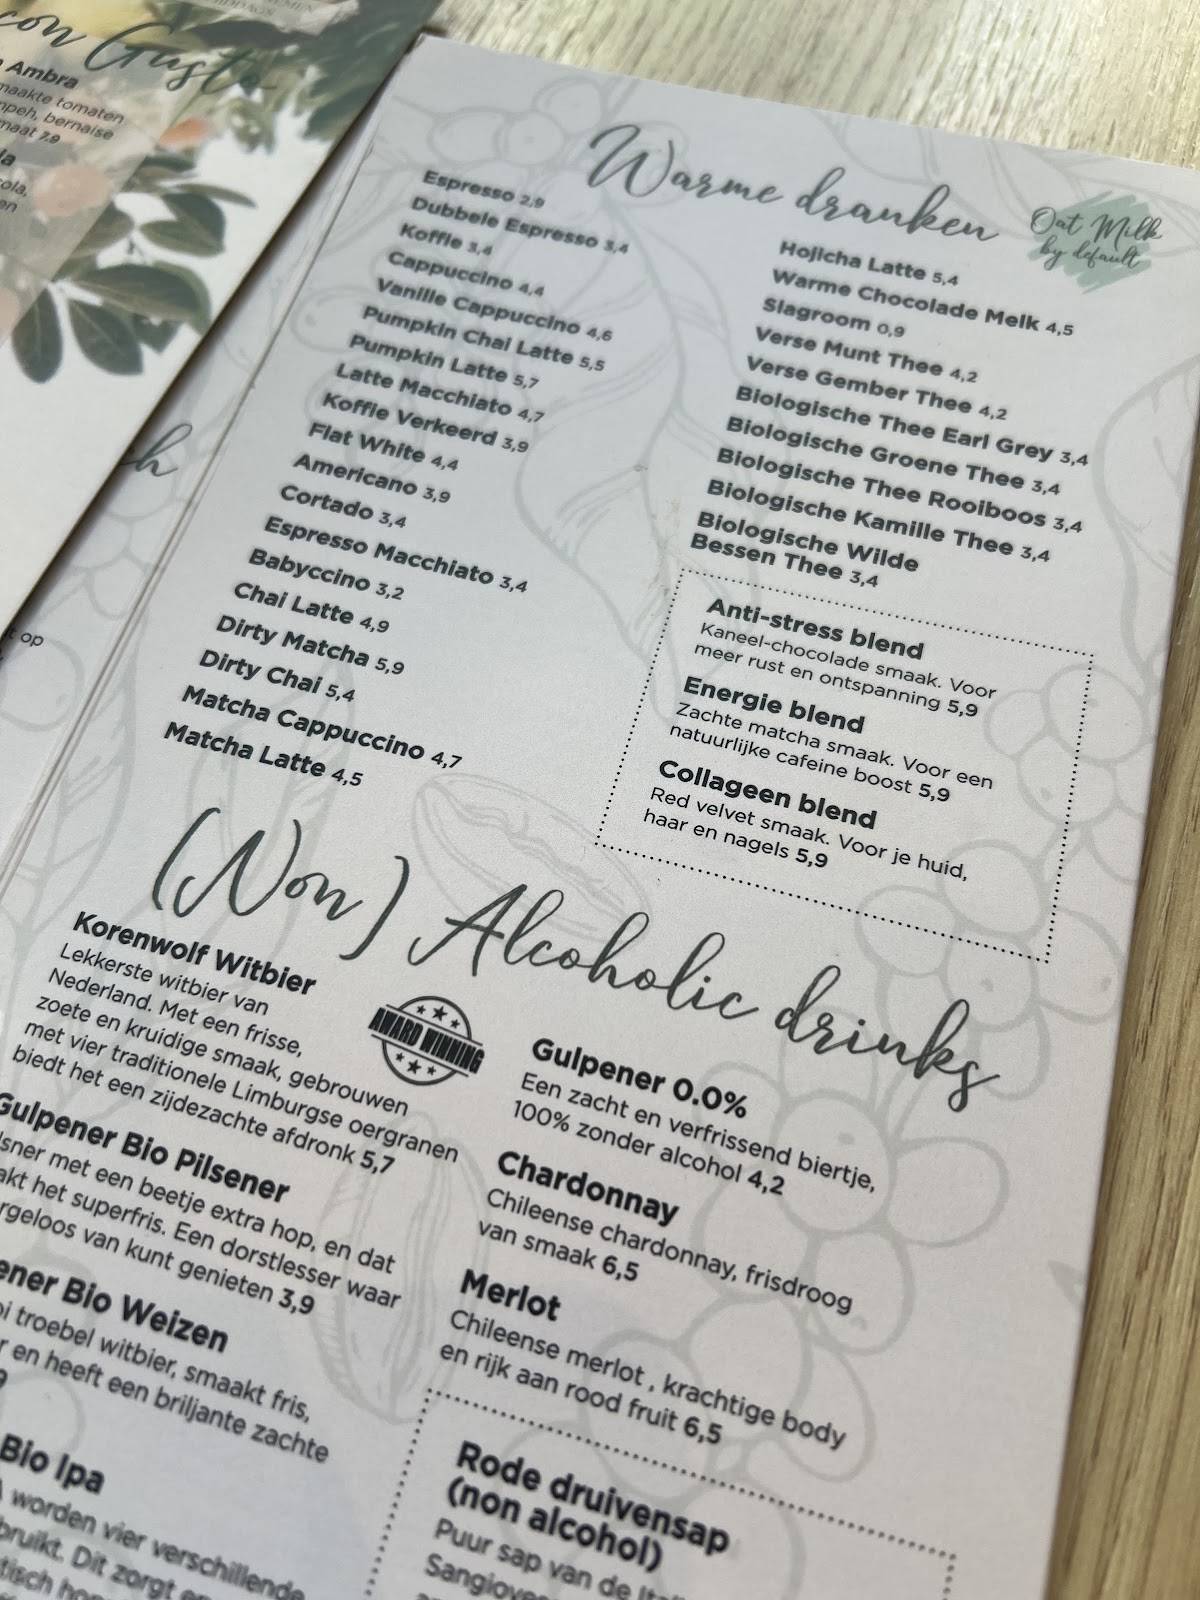 con Gusto
Ambra
maakte tomaten
bernaise
maat 7.9
op
Warme dranken
Oat Milk
by default
Espresso 2,9
Dubbele Espresso 3,4
Koffie 3,4
Cappuccino 4,4
Vanille Cappuccino 4,6
Pumpkin Chai Latte 5,5
Pumpkin Latte 5,7
Latte Macchiato 4,7
Koffie Verkeerd 3,9
Flat White 4,4
Americano 3,9
Cortado 3,4
Espresso Macchiato 3,4
Babyccino 3,2
Chai Latte 4,9
Dirty Matcha 5,9
Dirty Chai 5,4
Matcha Cappuccino 4,7
Matcha Latte 4,5
Hojicha Latte 5,4
Warme Chocolade Melk 4,5
Slagroom 0,9
Verse Munt Thee 4,2
Verse Gember Thee 4,2
Biologische Thee Earl Grey 3,4
Biologische Groene Thee 3,4
Biologische Thee Rooiboos 3,4
Biologische Kamille Thee 3,4
Biologische Wilde
Bessen Thee 3,4
Anti-stress blend
Kaneel-chocolade smaak. Voor
meer rust en ontspanning 5,9
Energie blend
Zachte matcha smaak. Voor een
natuurlijke cafeine boost 5,9
Collageen blend
Red velvet smaak. Voor je huid,
haar en nagels 5,9
(Non) Alcoholic drinks
Korenwolf Witbier
Lekkerste witbier van
Nederland. Met een frisse,
zoete en kruidige smaak, gebrouwen
met vier traditionele Limburgse oergranen
biedt het een zijdezachte afdronk 5,7
AWARD WINNING
Gulpener Bio Pilsener
lsner met een beetje extra hop, en dat
akt het superfris. Een dorstlesser waar
rgeloos van kunt genieten 3,9
ener Bio Weizen
oi troebel witbier, smaakt fris,
r en heeft een briljante zachte
9
Bio Ipa
A worden vier verschillende
bruikt. Dit zorgt
Gulpener 0.0%
Een zacht en verfrissend biertje,
100% zonder alcohol 4,2
Chardonnay
Chileense chardonnay, frisdroog
van smaak 6,5
Merlot
Chileense merlot , krachtige body
en rijk aan rood fruit 6,5
Rode druivensap
(non alcohol)
Puur sap van de